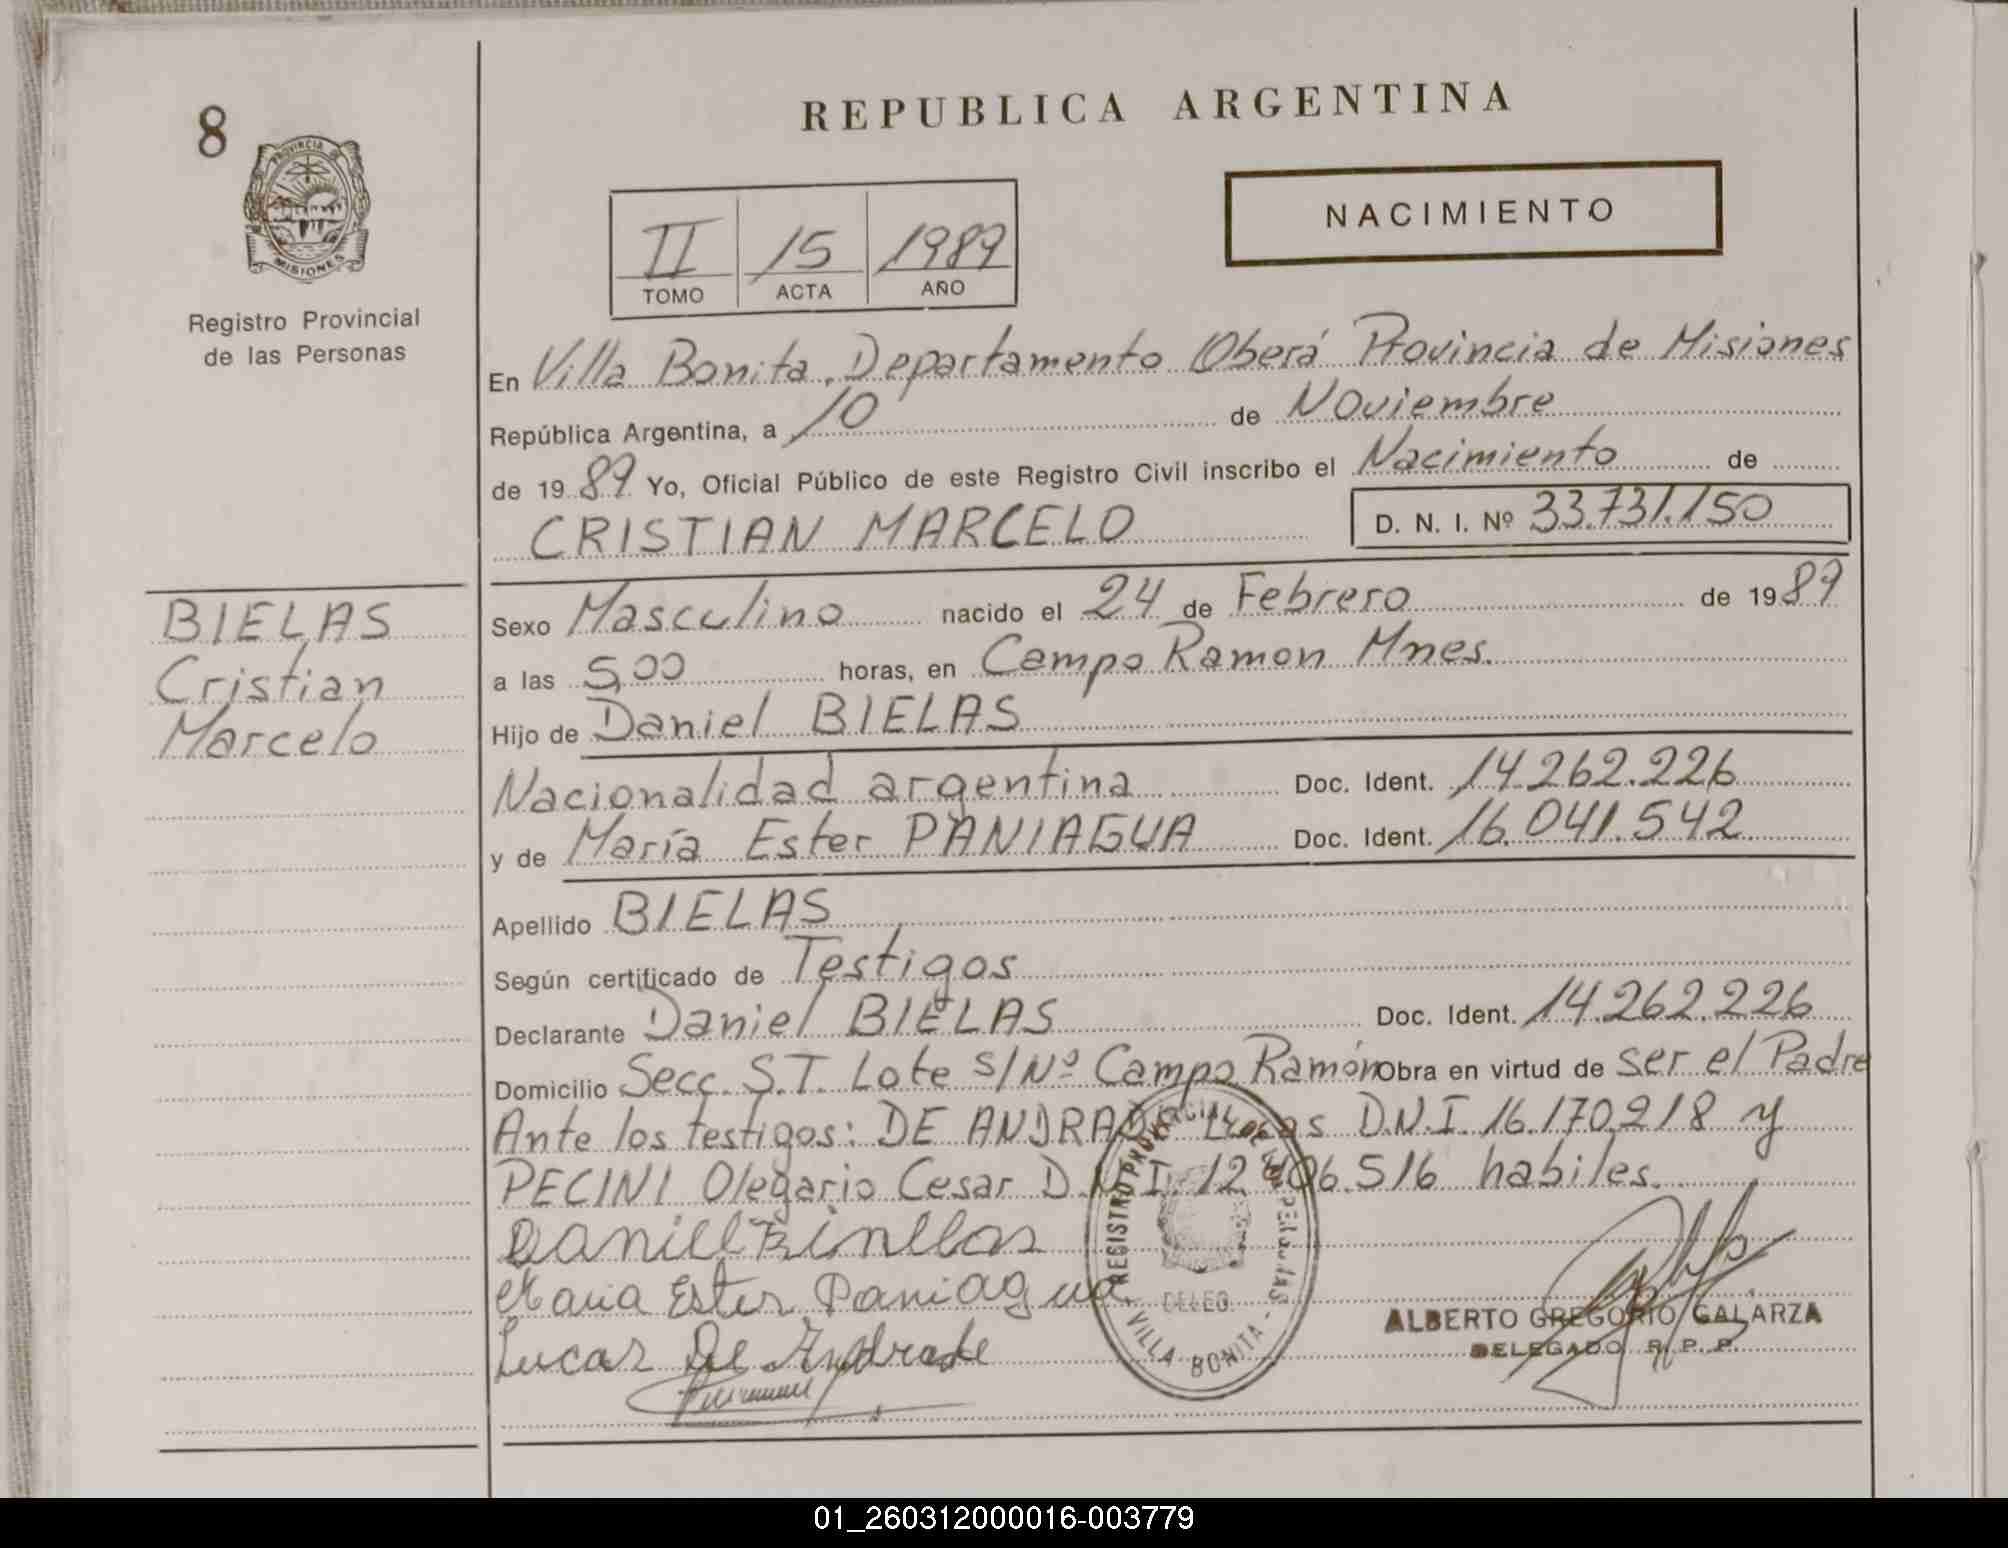 8
PROVINCIA DE
MISIONES
Registro Provincial
de las Personas
REPUBLICA ARGENTINA
NACIMIENTO
II 15 1989
TOMO ACTA AÑO
En Villa Bonita, Departamento Oberá Provincia de Misiones
República Argentina, a 10 de Noviembre
de 1989 Yo, Oficial Público de este Registro Civil inscribo el Nacimiento de
CRISTIAN MARCELO D. N. I. Nº 33.731.150
BIELAS
Cristian
Marcelo
Sexo Masculino nacido el 24 de Febrero de 1989
a las 5,00 horas, en Campo Ramon Mnes.
Hijo de Daniel BIELAS
Nacionalidad argentina Doc. Ident. 14.262.226
y de María Ester PANIAGUA Doc. Ident. 16.041.542
Apellido BIELAS
Según certificado de Testigos
Declarante Daniel BIELAS Doc. Ident. 14.262.226
Domicilio Secc. S.T. Lote S/Nº Campo Ramón Obra en virtud de ser el Padre
Ante los testigos: DE ANDRADE Lucas D.N.I. 16.170.218 y
PECINI Olegario Cesar D.N.I. 12. 06.516 habiles.
Daniel
Maria Ester Paniagua
Lucas De Andrade
REGISTRO PROVINCIAL DE LAS PERSONAS
DELEG
VILLA BONITA
ALBERTO GREGORIO GALARZA
DELEGADO R. P. P.
01_260312000016-003779